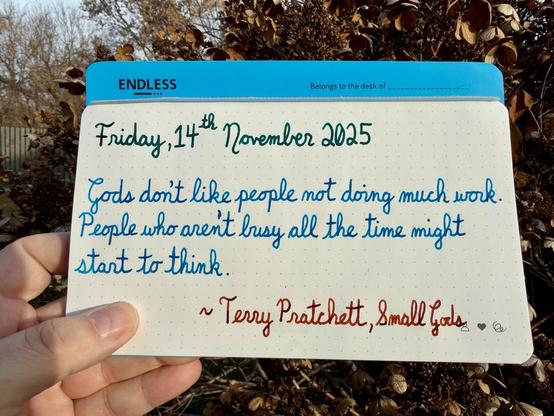 ENDLESS
Belongs to the desk of
Friday, 14th November 2025
Gods don't like people not doing much work.
People who aren't busy all the time might
start to think.
~ Terry Pratchett, Small Gods